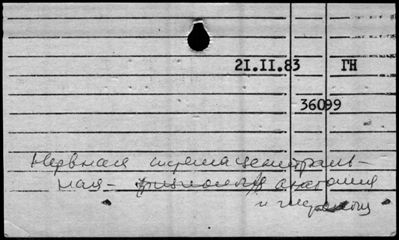 21.II.83 ГН
36099
Нервная система централь-
ная - физиология анатомия
и